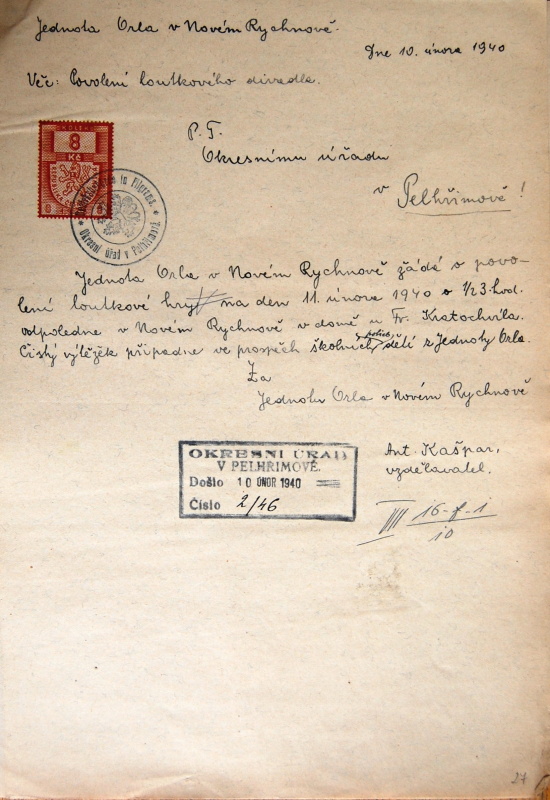 Jednota Orla v Novém Rychnově.
Dne 10. února 1940
Věc: Povolení loutkového divadla.
KOLEK
8
Kč
P. T.
Okresnímu úřadu
v Pelhřimově!
Okresní úřad v Pelhřimově
Jednota Orla v Novém Rychnově žádá o povo-
lení loutkové hry na den 11. února 1940 o 1/23. hod.
odpoledne v Novém Rychnově v domě u Fr. Kratochvíla.
Čistý výtěžek připadne ve prospěch školních potřeb dětí z Jednoty Orla.
Za
Jednotu Orla v Novém Rychnově
Ant. Kašpar,
vzdělavatel.
OKRESNÍ ÚŘAD
V PELHŘIMOVĚ.
Došlo 10 ÚNOR 1940
Číslo 2/46
VIII 16-f-1
10
27